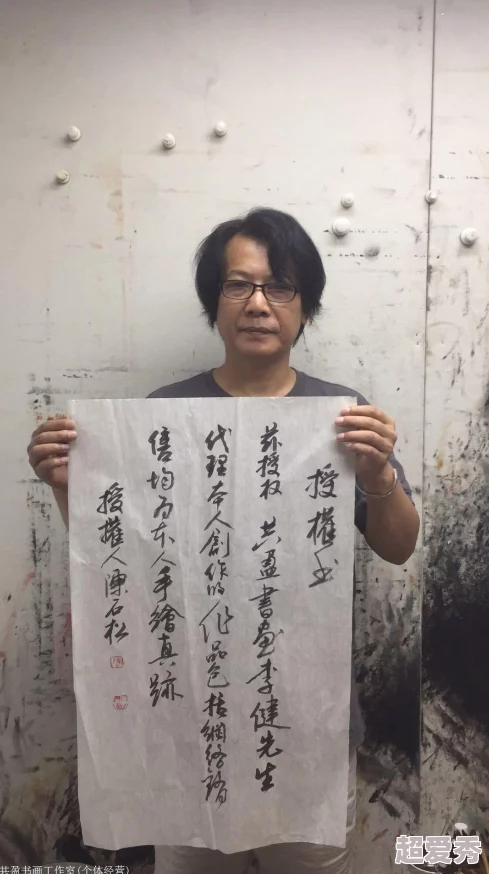 授權书
茲授权 共盈書画李健先生
代理本人創作的作品包括網络銷
售均为本人手繪真跡
授權人陳石松
共盈书画工作室(个体经营)
超爱秀